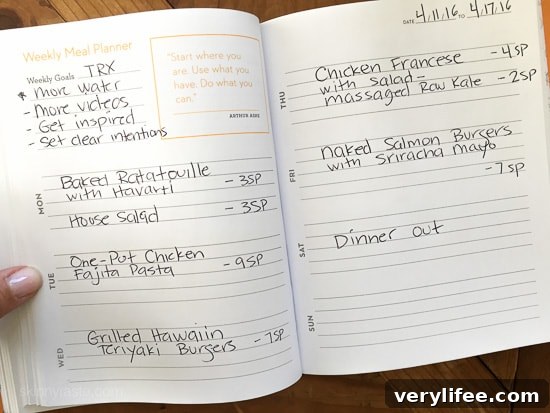 Weekly Meal Planner
Weekly Goals TRX
* more water
- more videos
- Get inspired
- Set clear intentions
"Start where you
are. Use what you
have. Do what you
can."
ARTHUR ASHE
MON
Baked Ratatouille
with Havarti - 3SP
House Salad - 3SP
TUE
One-Pot Chicken
Fajita Pasta - 9SP
WED
Grilled Hawaiin
Teriyaki Burgers - 7SP
DATE 4/11/16 TO 4/17/16
THU
Chicken Francese - 4SP
with salad -
massaged Raw Kale - 2SP
FRI
Naked Salmon Burgers
with Sriracha mayo
- 7SP
SAT
Dinner out
SUN
verylifee.com